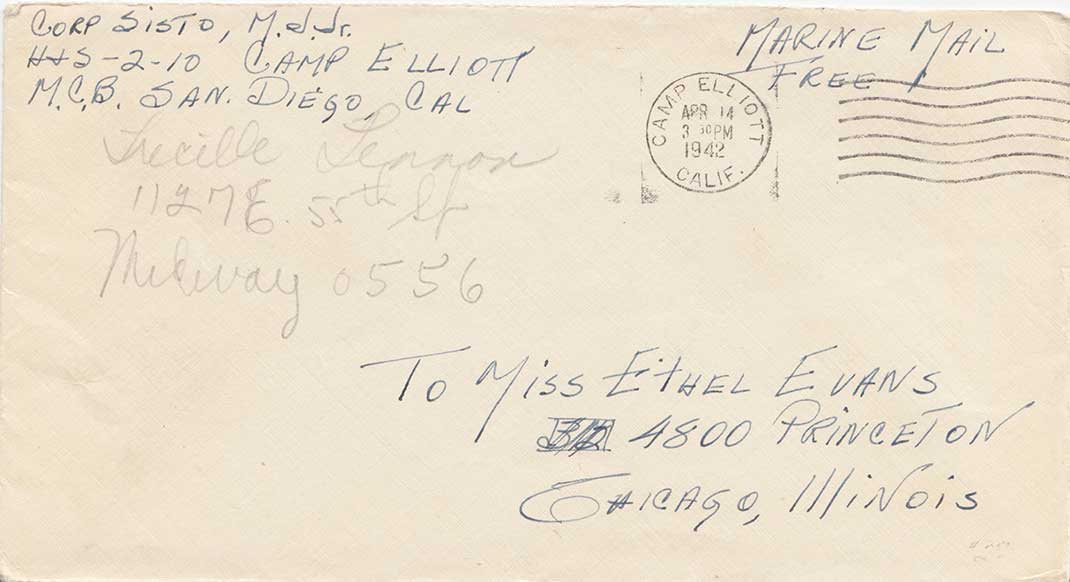 CORP SISTO, M.J.Jr.
H+S-2-10 CAMP ELLIOTT
M.C.B. SAN. DIEGO, CAL
MARINE MAIL
FREE
CAMP ELLIOTT
APR 14
3 30 PM
1942
CALIF.
Lucille Lennox
1127 E. 55th St
Midway 0556
TO MISS ETHEL EVANS
4800 PRINCETON
CHICAGO, IllINOIS